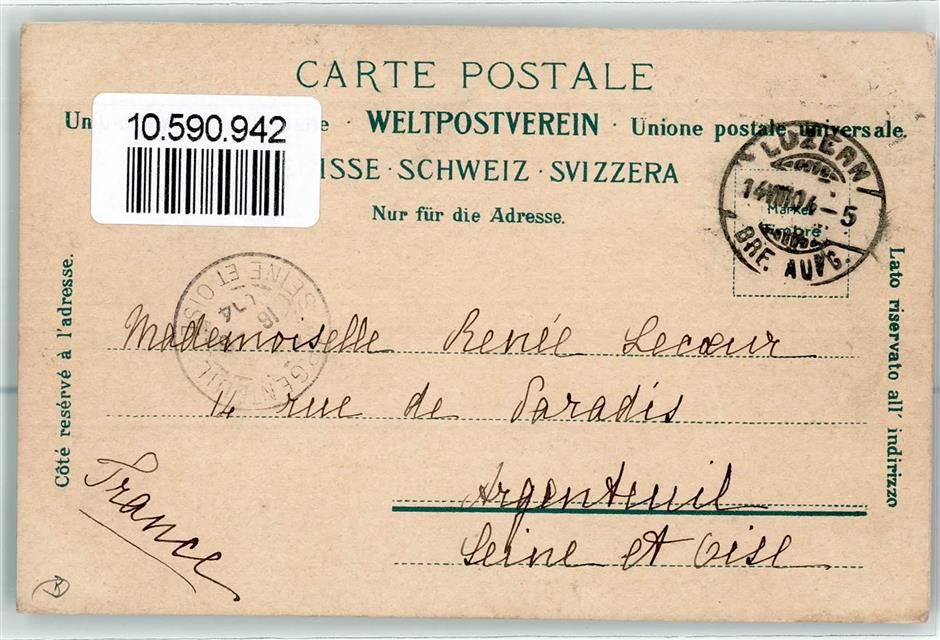 CARTE POSTALE
Un e · WELTPOSTVEREIN · Unione postale universale.
10.590.942
ISSE · SCHWEIZ · SVIZZERA
Nur für die Adresse.
LUZERN
14 VIII 04 – 5
Marke
Timbre
BRF. AUFG.
Côté resérvé à l'adresse.
Lato riservato all' indirizzo
ARGENTEUIL
SEINE ET OISE
16
Mademoiselle Renée Lecœur
14 rue de Paradis
Argenteuil
Seine et Oise
France